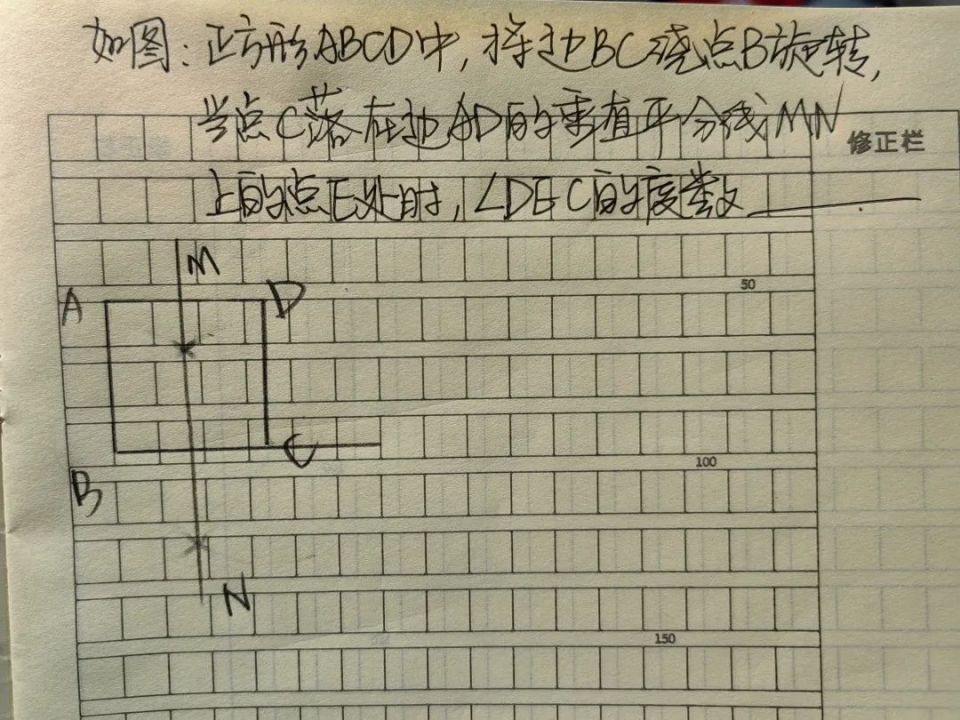 如图：正方形ABCD中，将边BC绕点B旋转，
当点C落在边AD的垂直平分线MN
修正栏
上的点E处时，∠DEC的度数______.
M
50
A
D
C
100
B
N
150